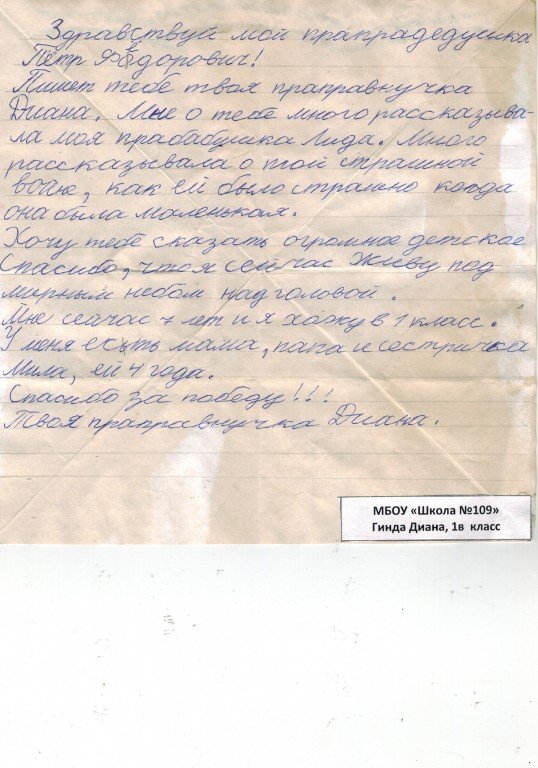 Здравствуй мой прапрадедушка
Пётр Фёдорович!
Пишет тебе твоя праправнучка
Диана. Мне о тебе много рассказыва-
ла моя прабабушка Лида. Много
рассказывала о той страшной
войне, как ей было страшно когда
она была маленькая.
Хочу тебе сказать огромное детское
Спасибо, что я сейчас живу под
мирным небом над головой.
Мне сейчас 7 лет и я хожу в 1 класс.
У меня есть мама, папа и сестричка
Мила, ей 4 года.
Спасибо за победу!!!
Твоя праправнучка Диана.
МБОУ «Школа №109»
Гинда Диана, 1в класс